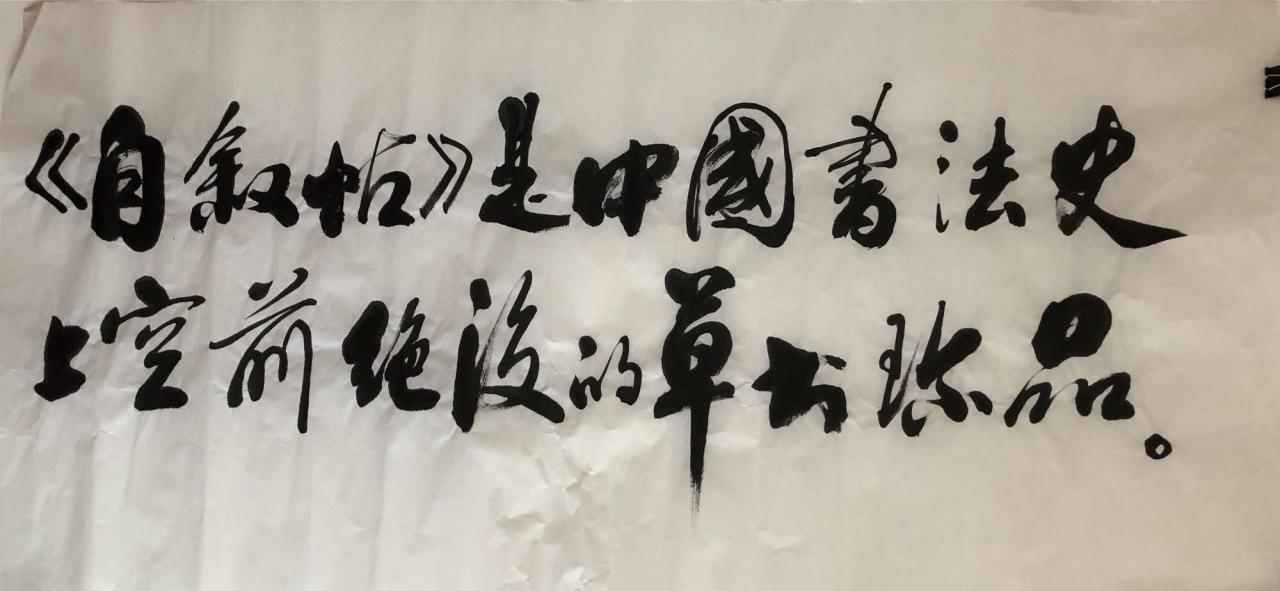 《自叙帖》是中國書法史
上空前絶後的草书珍品。